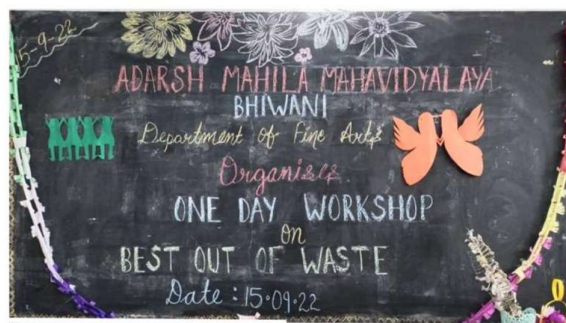 15-9-22
ADARSH MAHILA MAHAVIDYALAYA
BHIWANI
Department of Fine Arts
Organises
ONE DAY WORKSHOP
on
BEST OUT OF WASTE
Date : 15.09.22